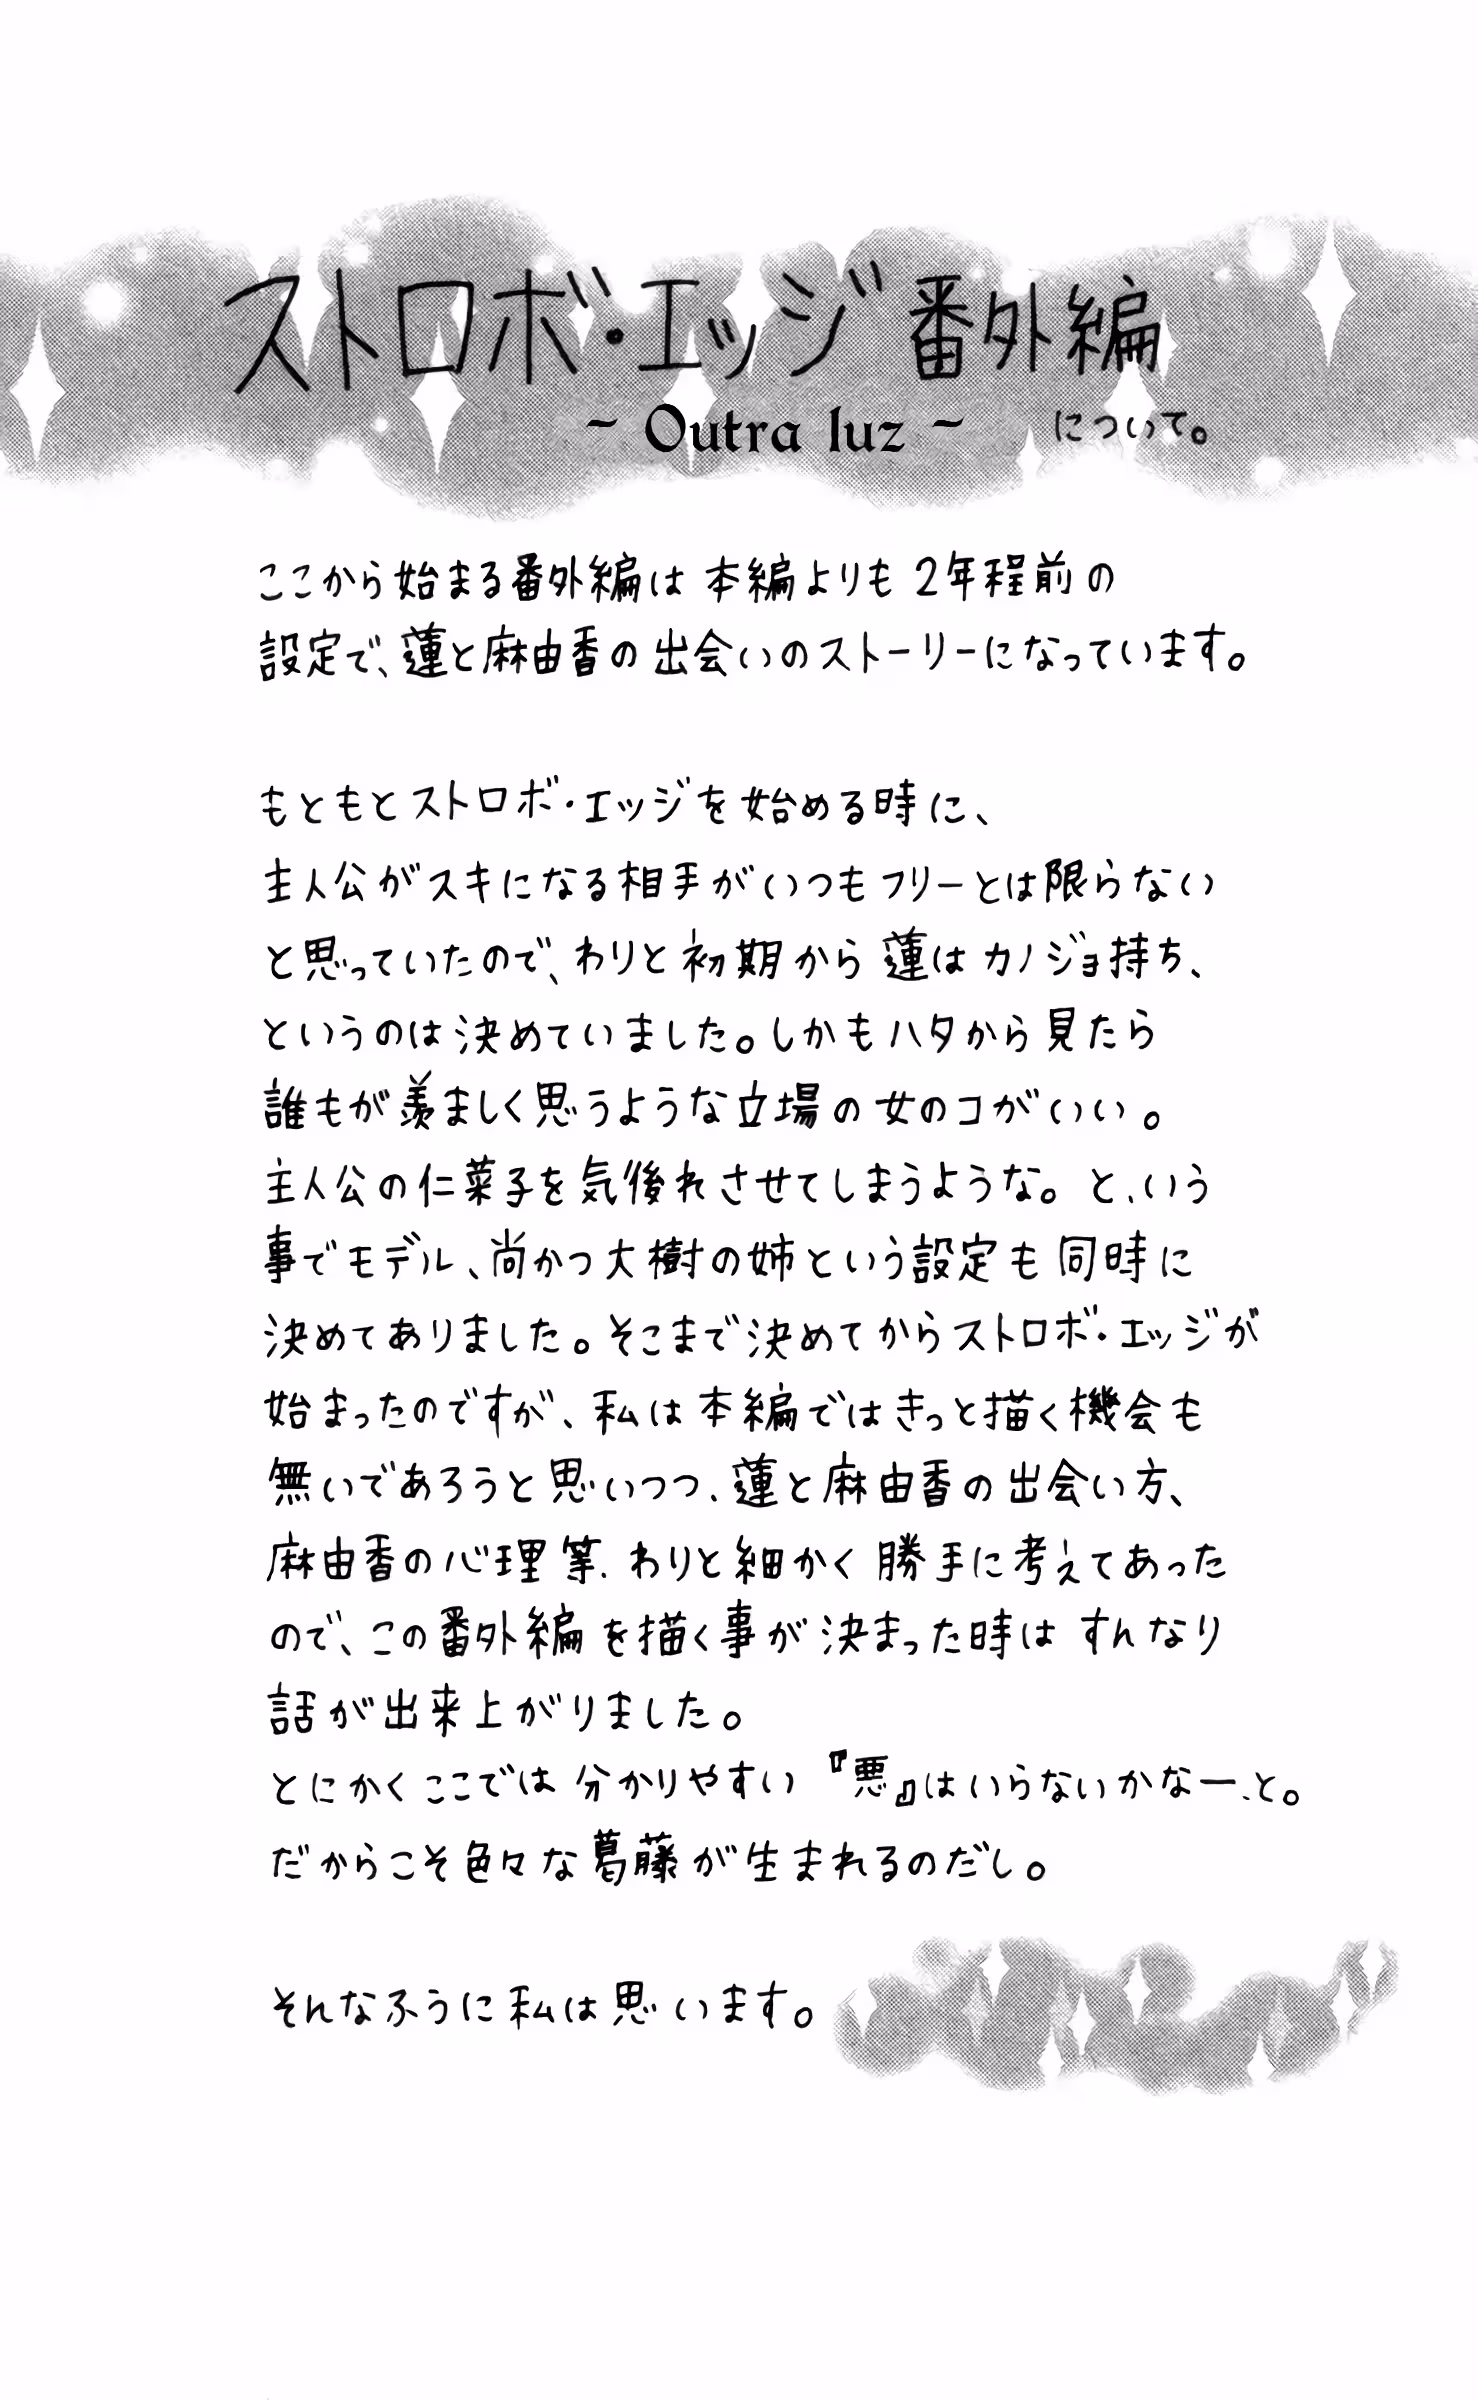 ストロボ・エッジ番外編
~ Outra luz ~ について。
ここから始まる番外編は本編よりも2年程前の
設定で、蓮と麻由香の出会いのストーリーになっています。
もともとストロボ・エッジを始める時に、
主人公がスキになる相手がいつもフリーとは限らない
と思っていたので、わりと初期から蓮はカノジョ持ち、
というのは決めていました。しかもハタから見たら
誰もが羨ましく思うような立場の女のコがいい。
主人公の仁菜子を気後れさせてしまうような。と、いう
事でモデル、尚かつ大樹の姉という設定も同時に
決めてありました。そこまで決めてからストロボ・エッジが
始まったのですが、私は本編ではきっと描く機会も
無いであろうと思いつつ、蓮と麻由香の出会い方、
麻由香の心理等、わりと細かく勝手に考えてあった
ので、この番外編を描く事が決まった時はすんなり
話が出来上がりました。
とにかくここでは分かりやすい『悪』はいらないかなー、と。
だからこそ色々な葛藤が生まれるのだし。
そんなふうに私は思います。